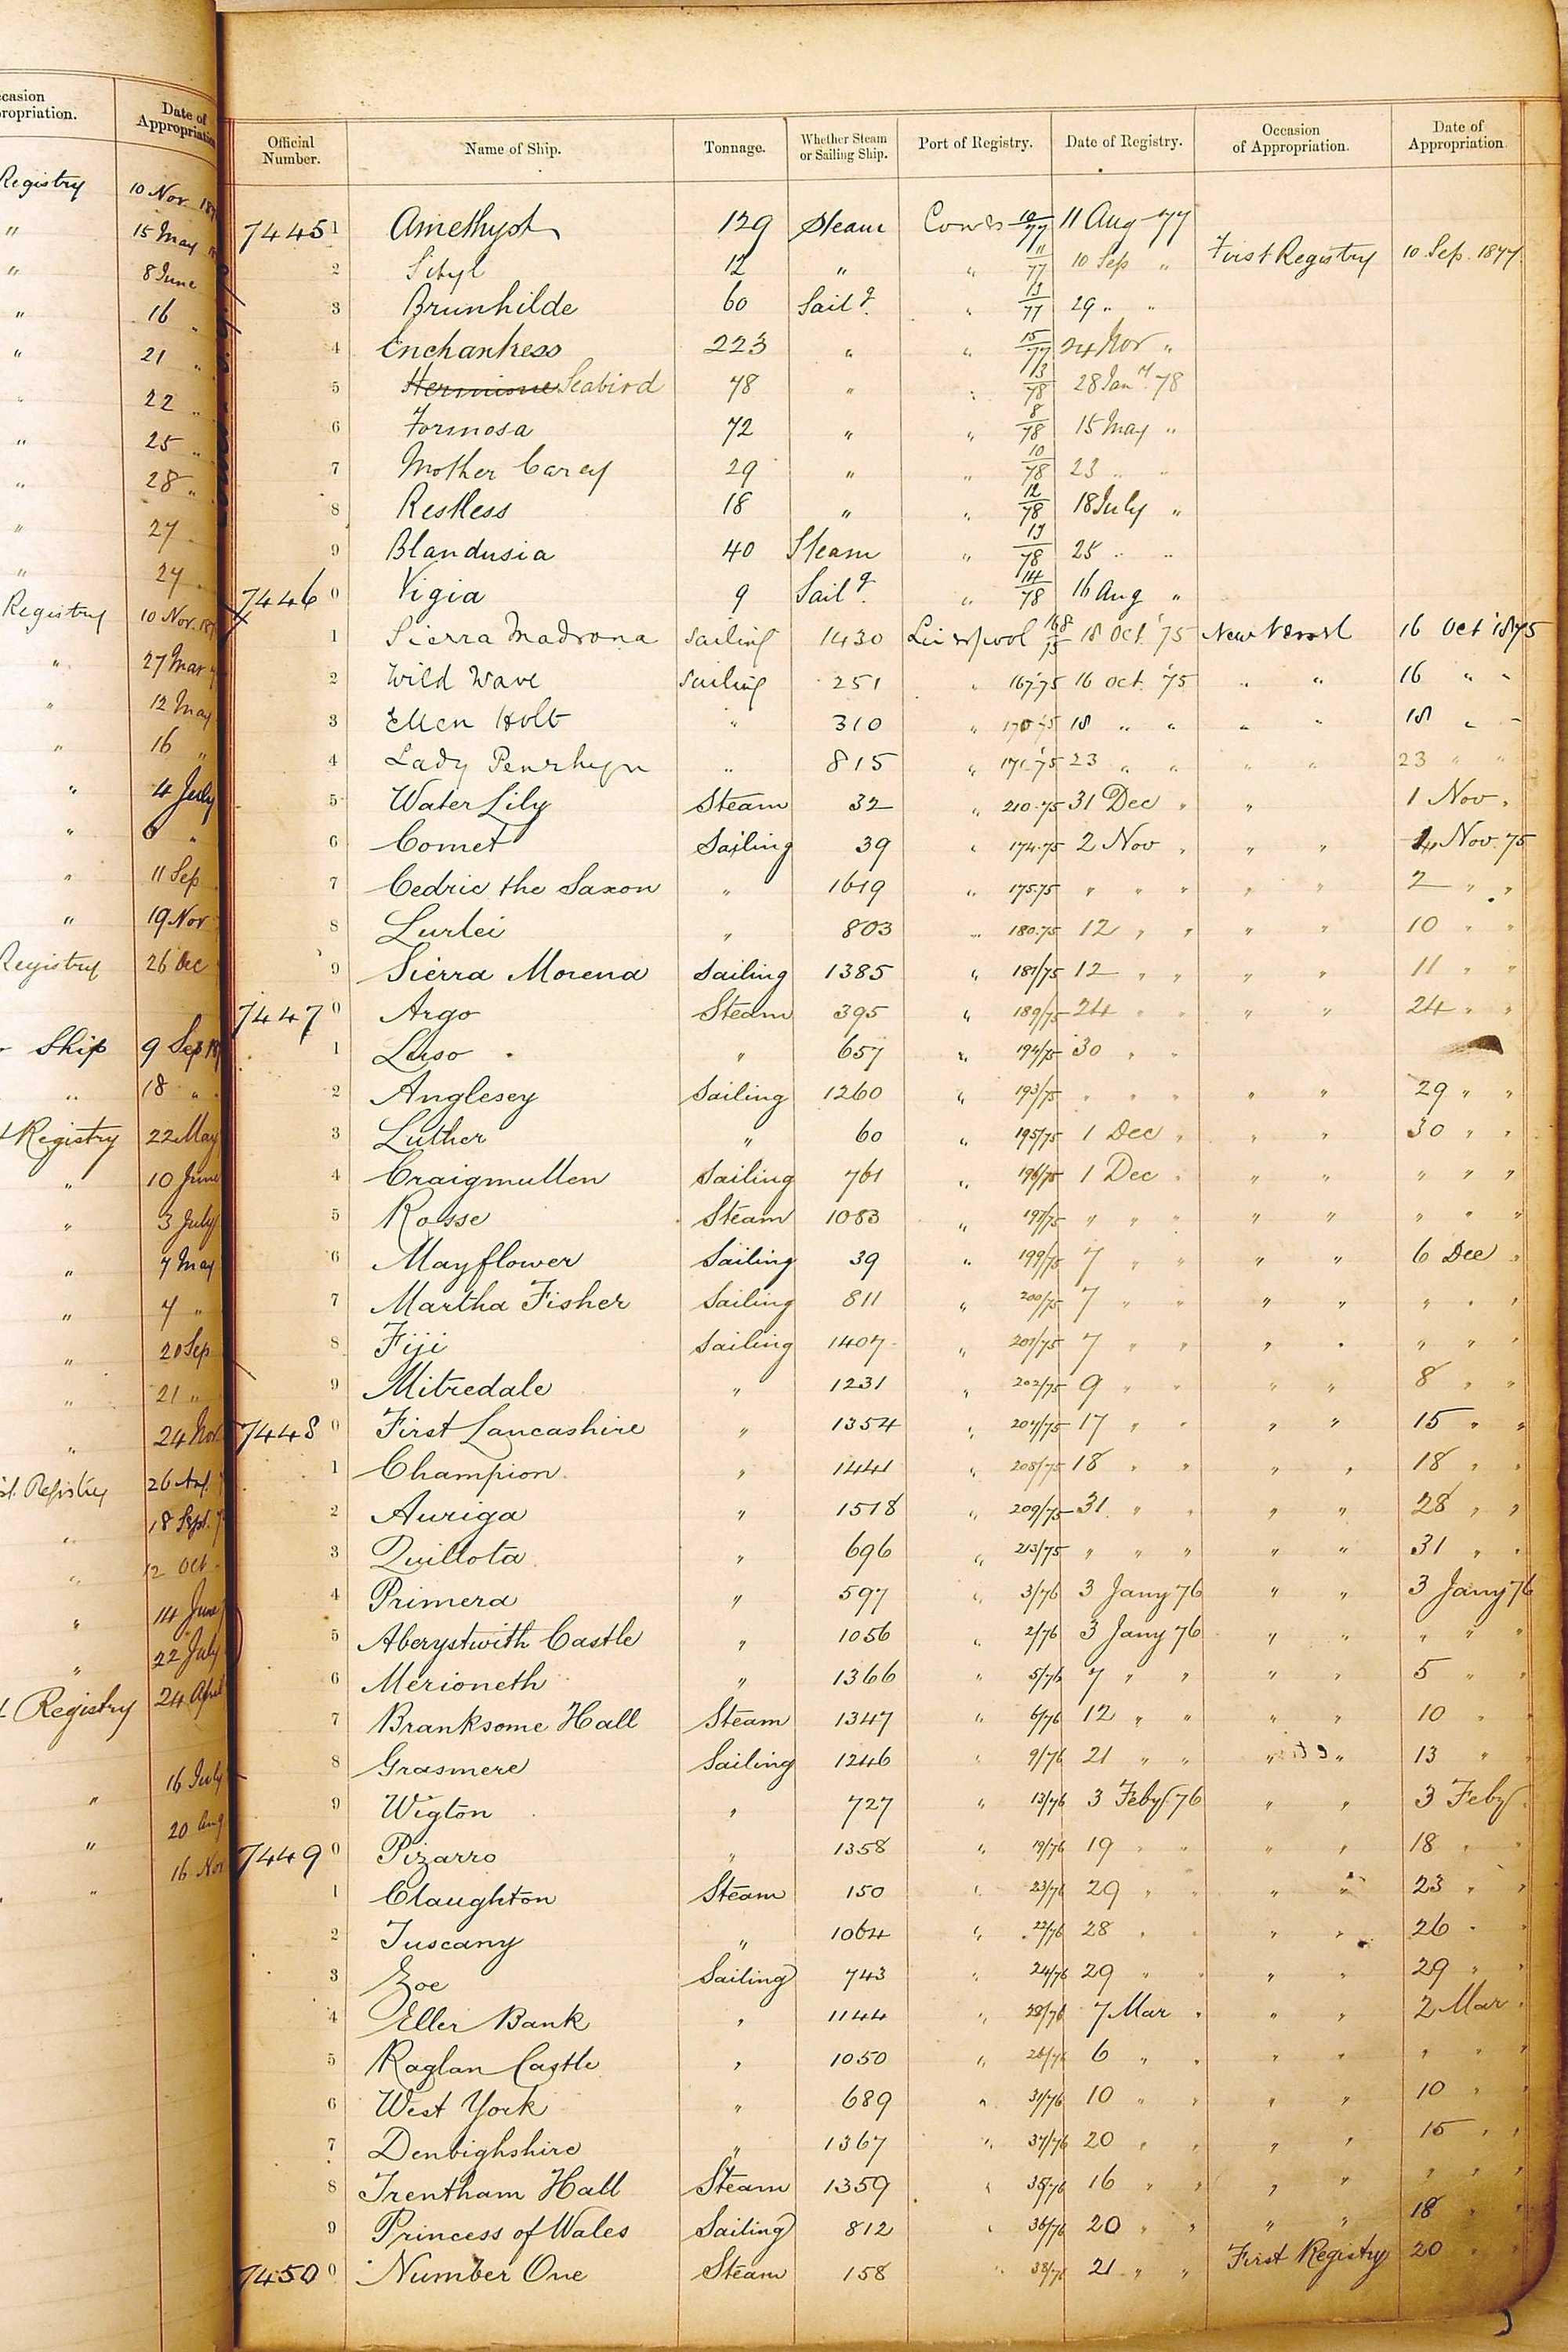 ccasion
ropriation.
Date of
Appropriation
Registry 10 Nov. 187
" 15 May
" 8 June
" 16 "
" 21 "
22 "
" 25 "
" 28 "
" 27
" 27
Registry 10 Nov. 187
" 27 Mar
" 12 May
" 16 "
" 4 July
" 6 "
" 11 Sep
" 19 Nov
Registry 26 Dec
Ship 9 Sep
" 18 "
Registry 22 May
" 10 June
" 3 July
" 7 May
" 7 "
" 20 Sep
" 21 "
" 24 Nov
Registry 26 Aug.
" 18 Sept.
" 12 Oct
" 14 June
" 22 July
Registry 24 April
16 July
" 20 Aug
" 16 Nov
Official Number. Name of Ship. Tonnage. Whether Steam or Sailing Ship. Port of Registry. Date of Registry. Occasion of Appropriation. Date of Appropriation.
7445 1 Amethyst 129 Steam Cowes 10/77 11 Aug 77
2 Sibyl 12 " " 11/77 10 Sep " First Registry 10 Sep. 1877.
3 Brunhilde 60 Sailg. " 13/77 29 " "
4 Enchantress 223 " " 15/77 24 Nov "
5 Hermione Seabird 78 " " 3/78 28 Jany. 78
6 Formosa 72 " " 8/78 15 May "
7 Mother Carey 29 " " 10/78 23 " "
8 Restless 18 " " 12/78 18 July "
9 Blandusia 40 Steam " 13/78 25 " "
7446 0 Vigia 9 Sailg. " 14/78 16 Aug "
1 Sierra Madrona Sailing 1430 Liverpool 168/75 18 Oct '75 New Vessel 16 Oct 1875
2 Wild Wave Sailing 251 " 167.75 16 Oct. '75 " " 16 " "
3 Ellen Holt " 310 " 170.75 18 " " " " 18 " "
4 Lady Penrhyn " 815 " 171.75 23 " " " " 23 " "
5 Water Lily Steam 32 " 210.75 31 Dec " " 1 Nov "
6 Comet Sailing 39 " 174.75 2 Nov " " " 1 Nov. 75
7 Cedric the Saxon " 1619 " 175.75 " " " " " 2 " "
8 Lurlei " 803 " 180.75 12 " " " " 10 " "
9 Sierra Morena Sailing 1385 " 181/75 12 " " " " 11 " "
7447 0 Argo Steam 395 " 189/75 24 " " " " 24 " "
1 Luso " 657 " 194/75 30 " "
2 Anglesey Sailing 1260 " 193/75 " " " " " 29 " "
3 Luther " 60 " 195/75 1 Dec " " " 30 " "
4 Craigmullen Sailing 761 " 196/75 1 Dec " " " " " "
5 Rosse Steam 1083 " 197/75 " " " " " " " "
6 Mayflower Sailing 39 " 199/75 7 " " " " 6 Dec "
7 Martha Fisher Sailing 811 " 200/75 7 " " " " " " "
8 Fiji Sailing 1407 " 201/75 7 " " " " " " "
9 Mitredale " 1231 " 202/75 9 " " " " 8 " "
7448 0 First Lancashire " 1354 " 207/75 17 " " " " 15 " "
1 Champion " 1441 " 208/75 18 " " " " 18 " "
2 Auriga " 1518 " 209/75 31 " " " " 28 " "
3 Quillota " 696 " 213/75 " " " " " 31 " "
4 Primera " 597 " 3/76 3 Jany 76 " " 3 Jany 76
5 Aberystwith Castle " 1056 " 2/76 3 Jany 76 " " " " "
6 Merioneth " 1366 " 5/76 7 " " " " 5 " "
7 Branksome Hall Steam 1347 " 6/76 12 " " " " 10 " "
8 Grasmere Sailing 1246 " 9/76 21 " " " " 13 " "
9 Wigton " 727 " 13/76 3 Feby 76 " " 3 Feby
7449 0 Pizarro " 1358 " 19/76 19 " " " " 18 " "
1 Claughton Steam 150 " 23/76 29 " " " " 23 " "
2 Tuscany " 1064 " 22/76 28 " " " " 26 " "
3 Zoe Sailing 743 " 24/76 29 " " " " 29 " "
4 Eller Bank " 1144 " 28/76 7 Mar " " " 2 Mar "
5 Raglan Castle " 1050 " 26/76 6 " " " " " " "
6 West York " 689 " 31/76 10 " " " " 10 " "
7 Denbighshire " 1367 " 37/76 20 " " " " 15 " "
8 Trentham Hall Steam 1359 " 35/76 16 " " " " " " "
9 Princess of Wales Sailing 812 " 36/76 20 " " " " 18 " "
7450 0 Number One Steam 158 " 38/76 21 " " First Registry 20 " "